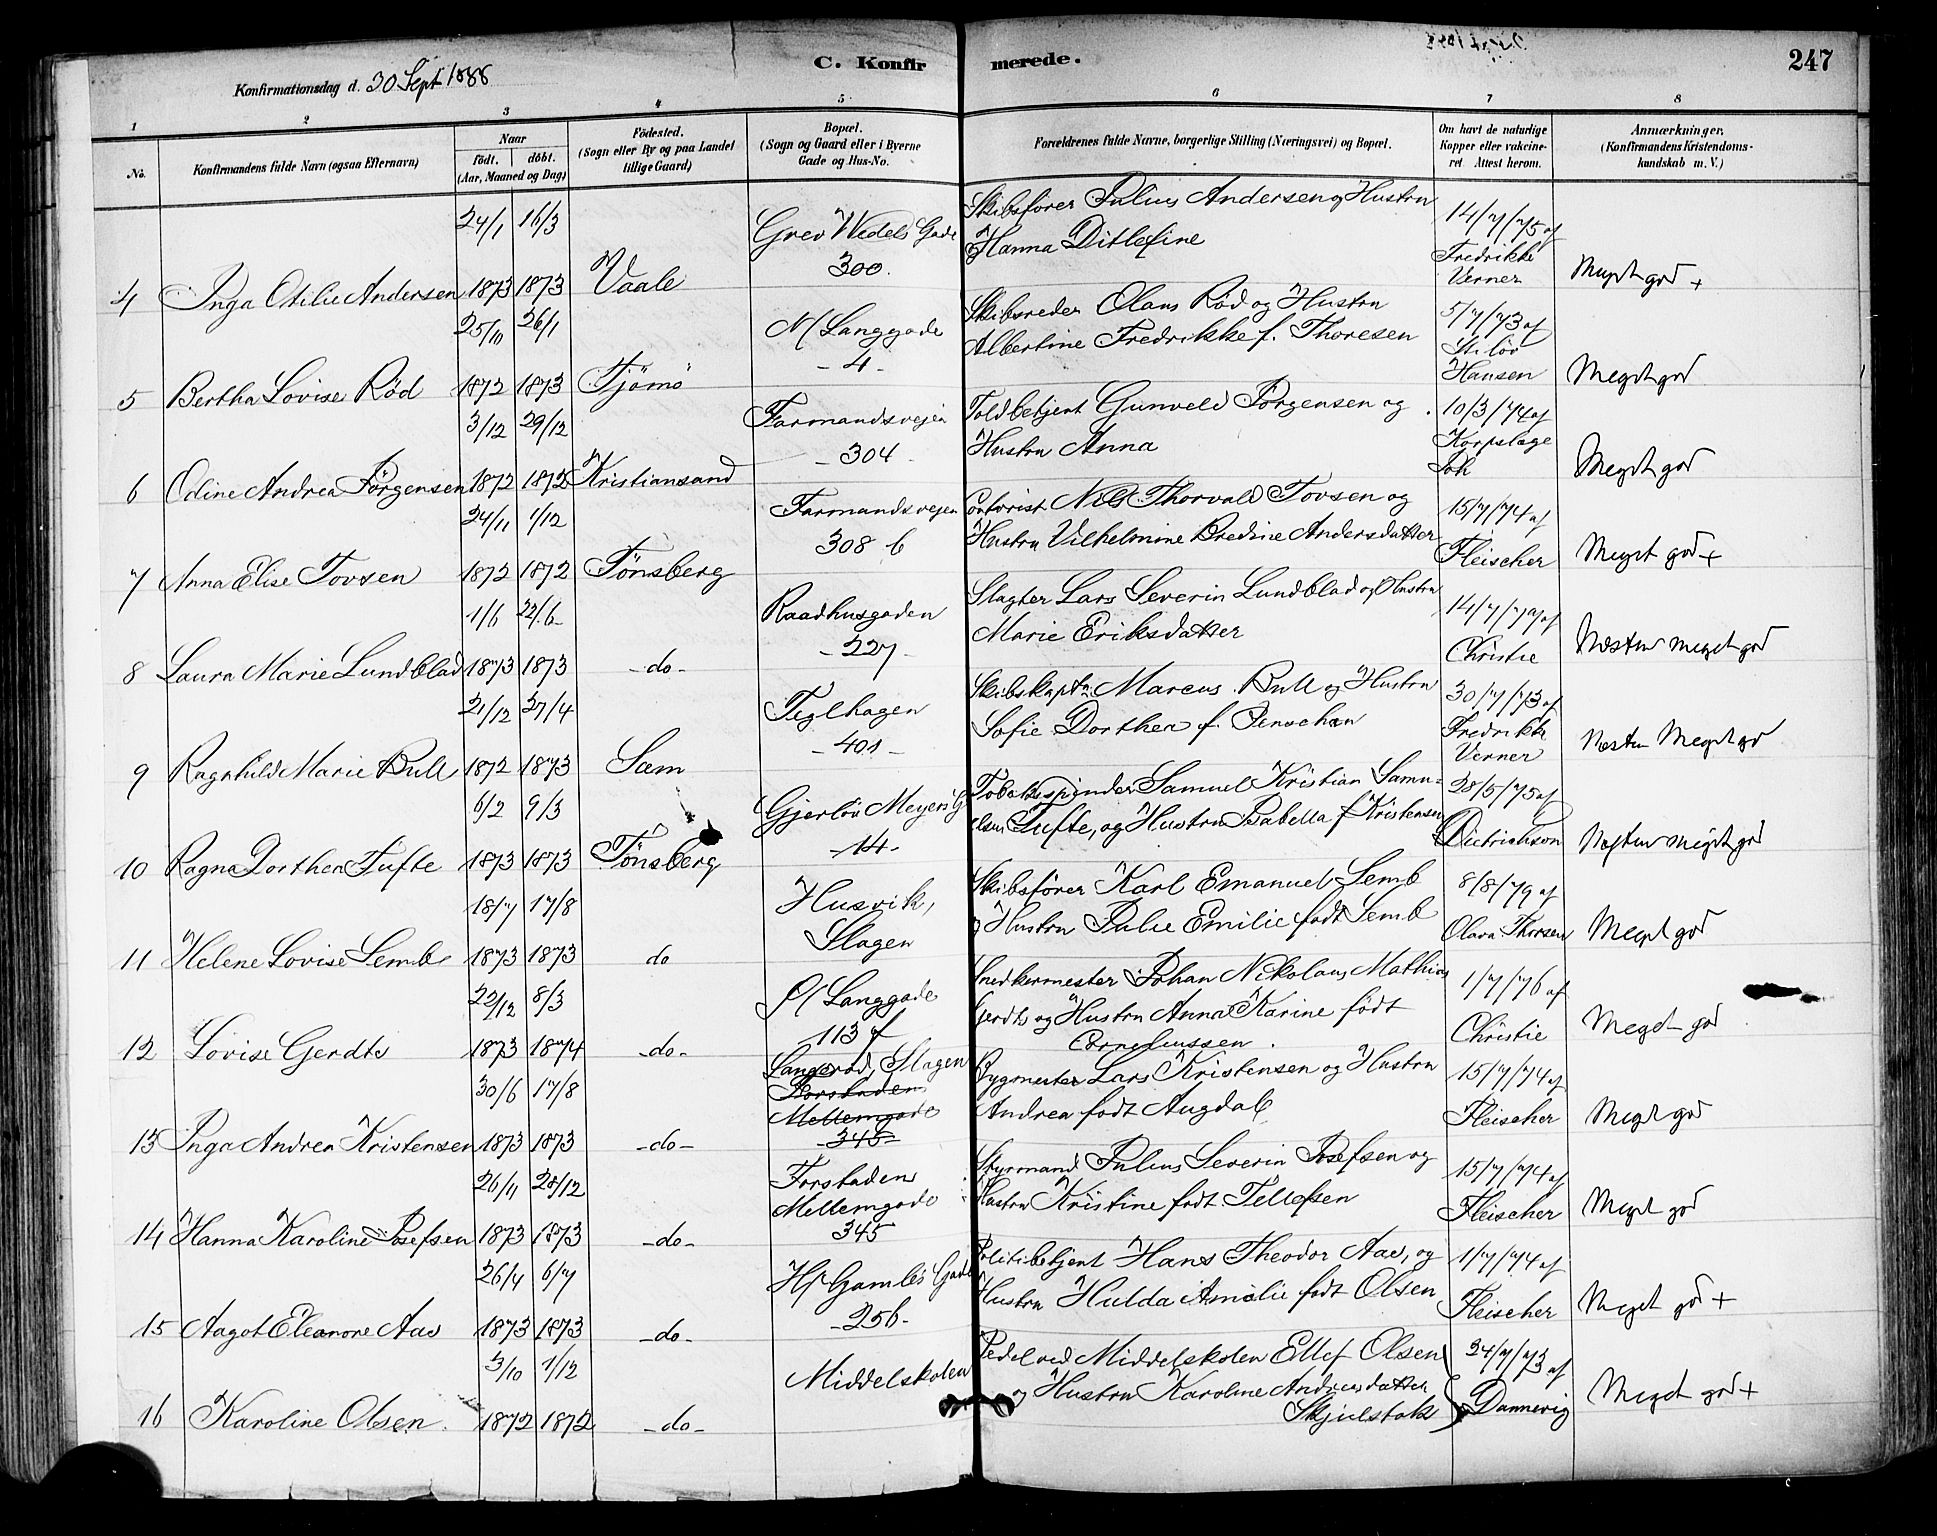 Konfirmationsdag d. 30 Sept 1888
C. Konfirmerede.
247
1 2 3 4 5 6 7 8
No. Konfirmandens fulde Navn (ogsaa Efternavn)
Naar
födt. döbt.
(Aar, Maaned og Dag)
Födested.
(Sogn eller By og paa Landet tillige Gaard)
Bopæl.
(Sogn og Gaard eller i Byerne Gade og Hus-No.
Forældrenes fulde Navne, borgerlige Stilling (Næringsvei) og Bopæl.
Om havt de naturlige Kopper eller vakcineret. Attest herom.
Anmærkninger.
(Konfirmandens Kristendomskundskab m. V.)
24/1 16/3 Grev Wedels Gade Skibsfører Julius Andersen og Hustru 14/7/75 af
300. Hanna Ditlefine Fredrikke Verner
4 Inga Otilie Andersen 1873 1873 Vaale Meget god +
25/10 26/1 N/ Langgade Skibsreder Olaus Rød og Hustru 5/7/73 af
- 4 - Albertine Fredrikke f. Thoresen Hansen
5 Bertha Lovise Rød 1872 1873 Tjömö Meget god
3/12 29/12 Farmandsvejen Toldbetjent Gunveld Jörgensen og 10/3/74 af
- 304 - Hustru Anna Korpslæge
6 Odine Andrea Jörgensen 1872 1872 Kristiansand Meget god
24/11 1/12 Farmandsvejen Nils Thorvald Tovsen og 15/7/74 af
308 b Hustru Vilhelmine Bredine Andersdatter Fleischer
7 Anna Elise Tovsen 1872 1872 Tönsberg Meget god +
1/6 22/6 Raadhusgaden Slagter Lars Severin Lundblad og Hustru 14/7/77 af
- 227 - Marie Eriksdatter Christie
8 Laura Marie Lundblad 1873 1873 - do - Næsten meget god
21/12 27/4 Teglhagen Skibskaptn. Marcus Bull og Hustru 30/7/73 af
- 401 - Sofie Dorthea f. Fredrikke Verner
9 Ragnhild Marie Bull 1872 1873 Sæm Næsten Meget god
6/2 9/3 Gjerlöw Meyers G. Tobakspinder Samuel Kristian Samu- 28/5/75 af
- 14 - elsen Tufte, og Hustru Isabella f Kristensen Dietrichson
10 Ragna Dorthea Tufte 1873 1873 Tönsberg Næsten meget god
18/7 17/8 Husvik, Skibsfører Karl Emanuel Semb 8/8/79 af
Slagen og Hustru Julie Emilie født Semb Olava Thorsen
11 Helene Lovise Semb 1873 1873 do Meget god
22/12 8/3 S/ Langgade Snedkermester Johan Nikolaus Mathias 1/7/76 af
113 f Gerdts og Hustru Anna Karine født Corneliussen Christie
12 Lovise Gerdts 1873 1874 - do - Meget god
30/6 17/8 Langerød, Slagen Bygmester Lars Kristensen og Hustru 15/7/74 af
Forstaden Mellemgade 345 Andrea født Augdal Fleischer
13 Inga Andrea Kristensen 1873 1873 - do - Meget god
26/11 28/12 Forstaden Styrmand Julius Severin Josefsen og 15/7/74 af
Mellemgade 345 Hustru Kristine født Tellefsen Fleischer
14 Hanna Karoline Josefsen 1873 1873 - do - Meget god
26/4 6/7 H/ Gamles Gade Politibetjent Hans Theodor Aas, og 1/7/74 af
- 256 - Hustru Hulda Amalie født Olsen Fleischer
15 Aagot Eleanore Aas 1873 1873 - do - Meget god +
3/10 1/12 Middelskolen Pedel ved Middelskolen Ellef Olsen 24/7/73 af
og Hustru Karoline Andreasdatter Skjulstok Dannevig
16 Karoline Olsen 1872 1872 - do - Meget god +